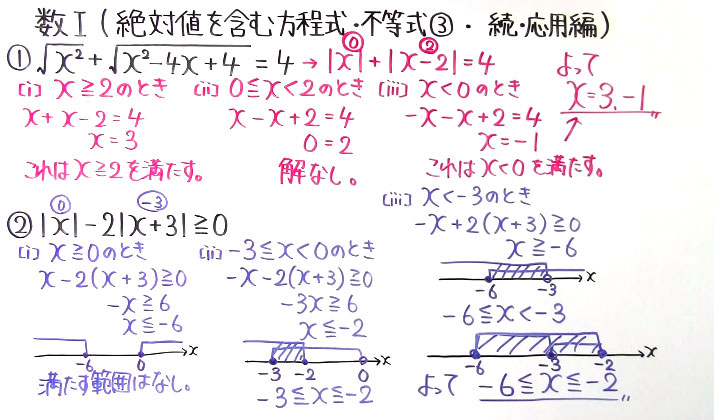 数Ⅰ(絶対値を含む方程式・不等式③・続・応用編)
①√x² + √x²-4x+4 = 4 → |x| + |x-2| = 4
0 2
(i) x≧2のとき
x+x-2=4
x=3
これはx≧2を満たす。
(ii) 0≦x<2のとき
x-x+2=4
0=2
解なし。
(iii) x<0のとき
-x-x+2=4
x=-1
これはx<0を満たす。
よって
x=3,-1
②|x|-2|x+3|≧0
0 -3
(i) x≧0のとき
x-2(x+3)≧0
-x≧6
x≦-6
-6 0 x
満たす範囲はなし。
(ii) -3≦x<0のとき
-x-2(x+3)≧0
-3x≧6
x≦-2
-3 -2 0 x
-3≦x≦-2
(iii) x<-3のとき
-x+2(x+3)≧0
x≧-6
-6 -3 x
-6≦x<-3
-6 -3 -2 x
よって -6≦x≦-2